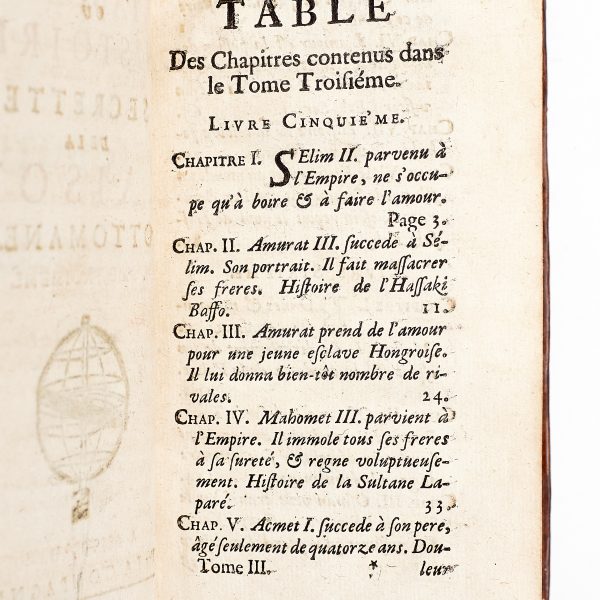 TABLE
Des Chapitres contenus dans
le Tome Troisiéme.
LIVRE CINQUIE'ME.
CHAPITRE I. SElim II. parvenu à
l'Empire, ne s'occu-
pe qu'à boire & à faire l'amour.
Page 3.
CHAP. II. Amurat III. succede à Sé-
lim. Son portrait. Il fait massacrer
ses freres. Histoire de l'Hassaki
Baffo. 11.
CHAP. III. Amurat prend de l'amour
pour une jeune esclave Hongroise.
Il lui donna bien-tôt nombre de ri-
vales. 24.
CHAP. IV. Mahomet III. parvient à
l'Empire. Il immole tous ses freres
à sa sureté, & regne voluptueuse-
ment. Histoire de la Sultane La-
paré. 33.
CHAP. V. Acmet I. succede à son pere,
âgé seulement de quatorze ans. Dou-
Tome III. * leur